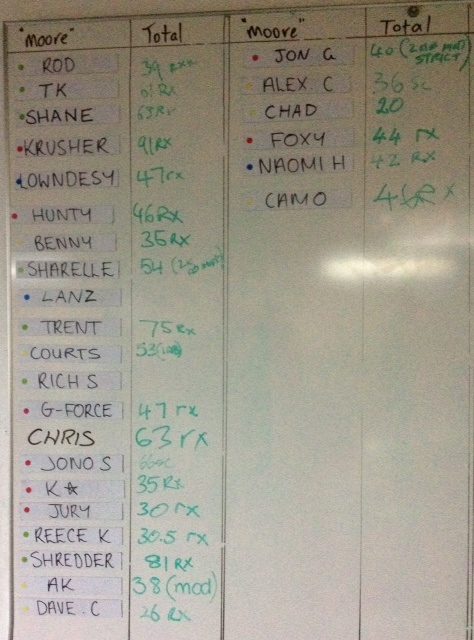 "moore" Total
ROD 39 RXX
TK 61 Rx
SHANE 63Rx
KRUSHER 91RX
LOWNDESY 47rx
HUNTY 46Rx
BENNY 35RX
SHARELLE 54
LANZ
TRENT 75Rx
COURTS 53
RICH S
G-FORCE 47 rx
CHRIS 63 rx
JONO S
K☆ 35Rx
JURY 30 rx
REECE K 30.5 rx
SHREDDER 81RX
AK 38 (mod)
DAVE. C 26 RX
"moore" Total
JON G 40
STRICT)
ALEX. C 36 sc
CHAD 20
FOXY 44 rx
NAOMI H 42 RX
CAMO